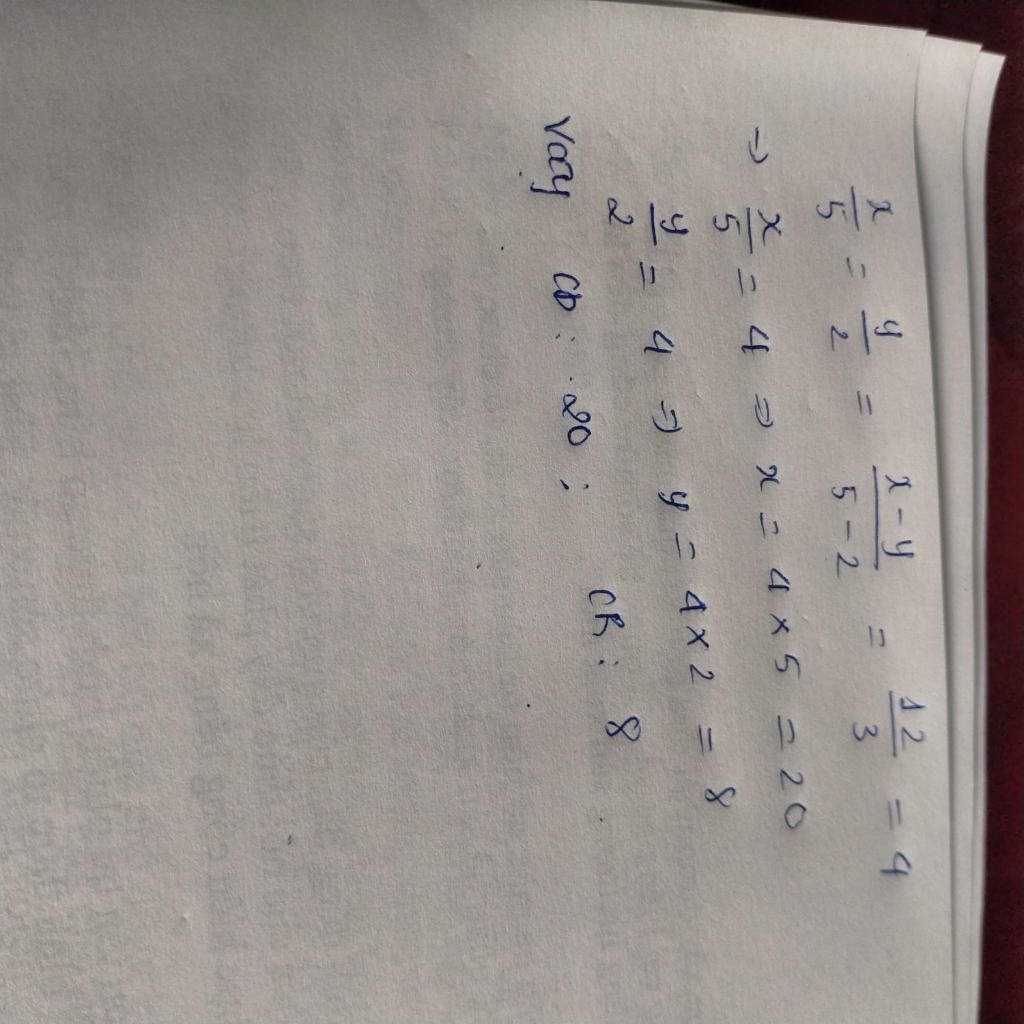 x/5 = y/2 = x-y/5-2 = 12/3 = 4
⇒ x/5 = 4 ⇒ x = 4 x 5 = 20
y/2 = 4 ⇒ y = 4 x 2 = 8
Vậy CD: 20; CR: 8